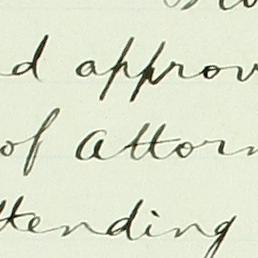 d approv
of Attorn
ttending